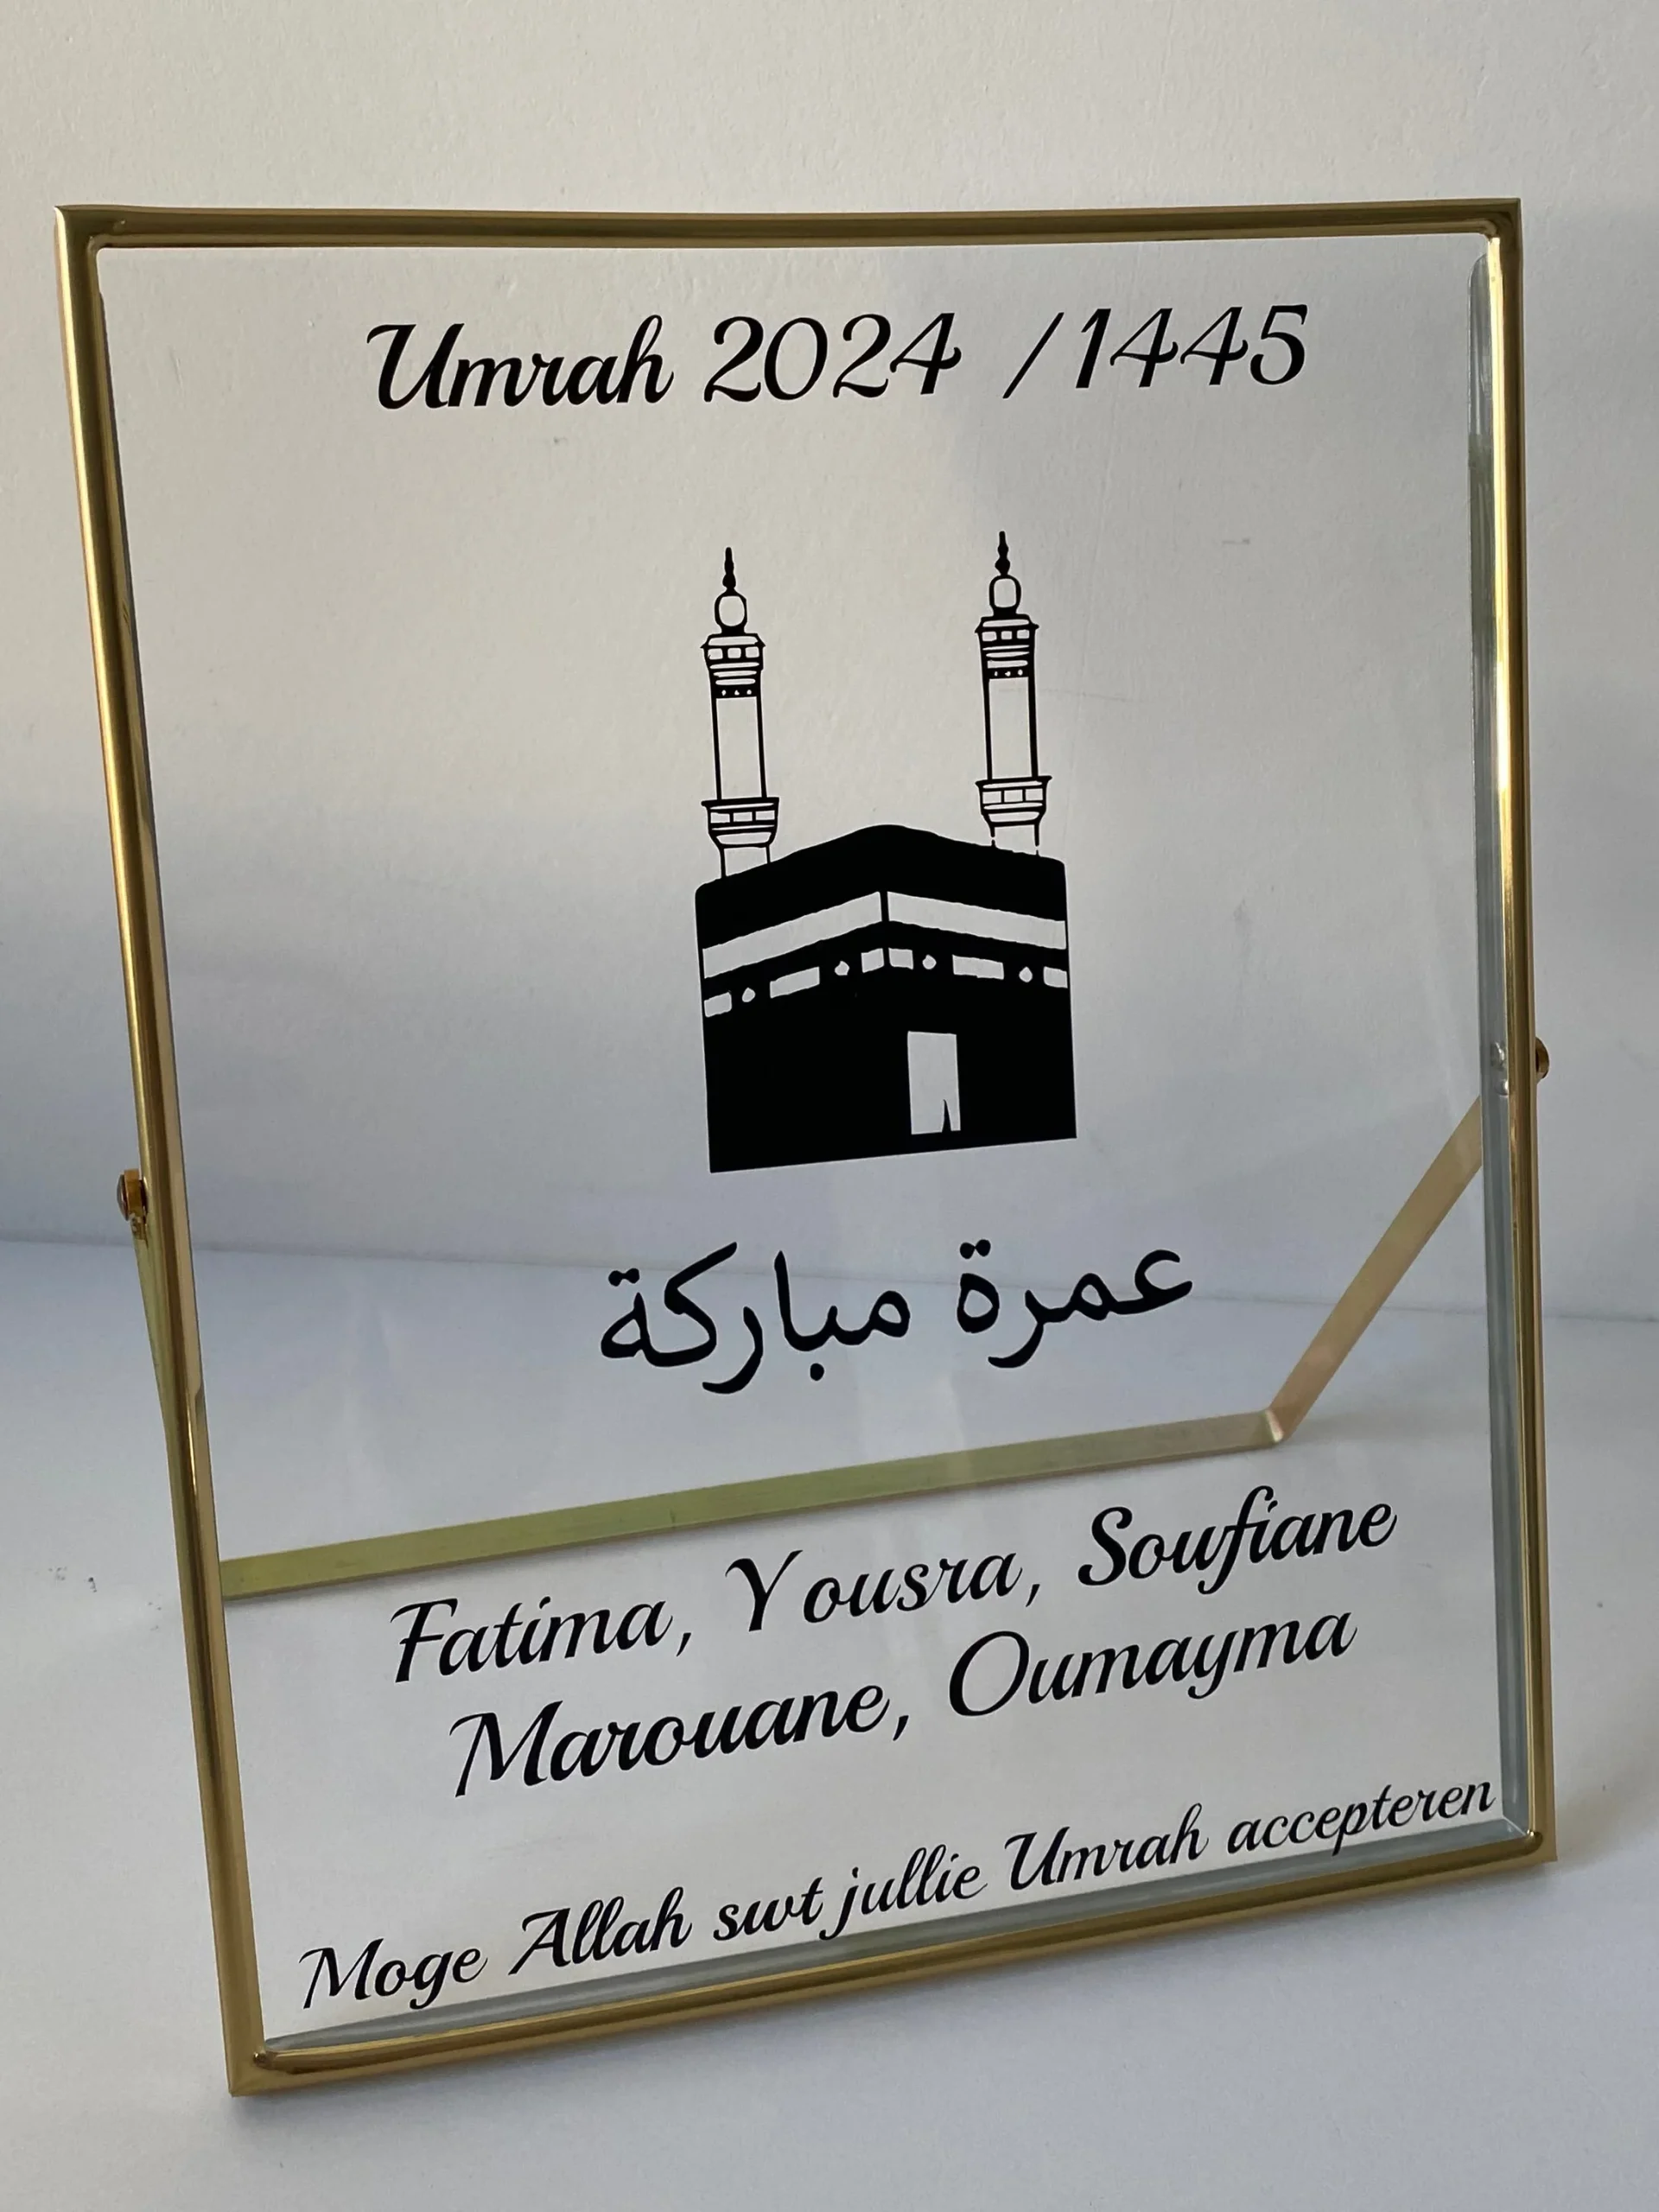 Umrah 2024 /1445
عمرة مباركة
Fatima, Yousra, Soufiane
Marouane, Oumayma
Moge Allah swt jullie Umrah accepteren